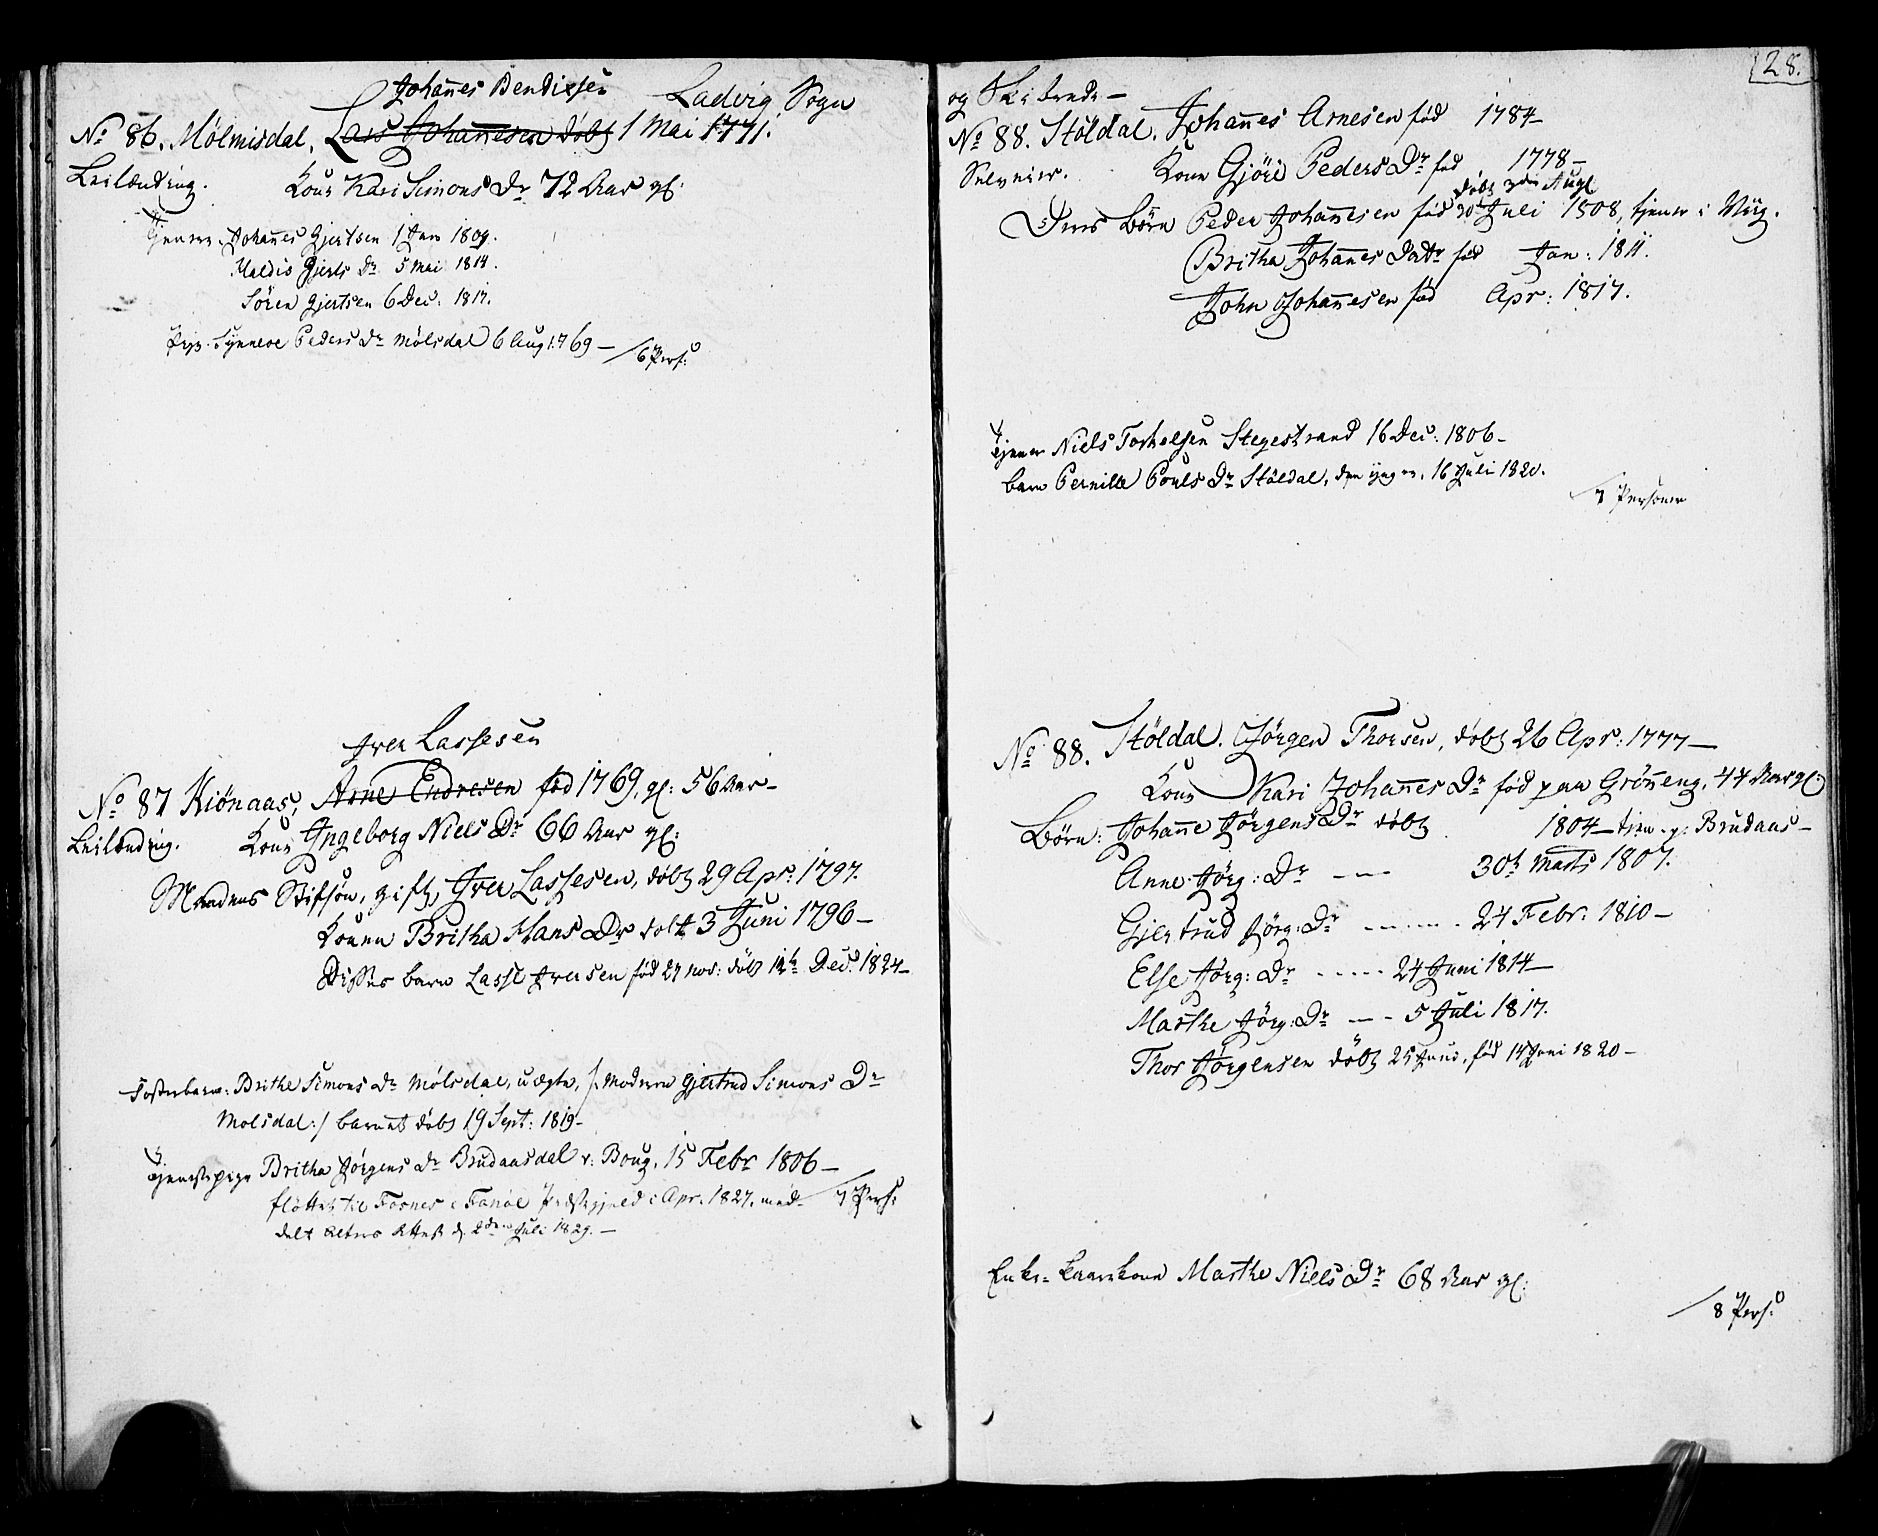 Johannes Bendixsen Ladvig Sogn
No 86. Mølmisdal, Lars Johannesen døbt 1 Mai 1771.
Leilænding. Kone Kari Simons Dr 72 Aar gl:
Tjener Johannes Gjertsen 1 Jan 1809.
Maldis Gjerts Dr 5 Mai 1814.
Sören Gjertsen 6 Dec: 1817.
Synneve Peders Dr Mölsdal 6 Aug 1769 —
/6 Pers:
Iver Lassesen
No 87 Kiönaas, Arne Endresen född 1769, gl: 56 Aar —
Leilænding. Kone Ingeborg Niels Dr 66 Aar gl:
Mandens Stifsön, gift, Iver Lassesen, döbt 29 Apr: 1797.
Konen Britha Hans Dr dobt 3 Juni 1796 —
Disses barn Lasse Iversen föd 27 nov: döbt 12te Dec: 1824 —
Fosterbarn: Brithe Simons Dr Mölsdal, uægte, /: Moderen Gjertrud Simons Dr
Molsdal :/ barnet döbt 19 Sept: 1819 —
Tjenestepige Britha Jörgens Dr Brudaasdal v: Boug. 15 Febr 1806 —
flöttet til Fosnes i Præstegjeld i Apr. 1827. med-
/7 Pers:
delt Attest d. 2den Juli 1829. —
28.
og Skilbrede —
No 88. Stöldal. Johannes Arnesen föd 1784 —
Selveier. Kone Gjöri Peders Dr föd 1778 —
döbt 3die Aug
Deres Börn Peder Johannesen föd 30 Juli 1808, tjener i Viig.
Britha Johannes Datr föd Jan: 1811.
John Johannesen föd Apr: 1817.
Tjener Niels Torkelsen Stegestrand 16 Dec: 1806 —
barn Pernille Pouls Dr Stöldal, den yngre, 16 Juli 1820.
/7 Personer
No 88. Stöldal. Jörgen Thorsen, döbt 26 Apr: 1777 —
Kone Kari Johannes Dr föd paa Grönneng, 44 Aar gl:
Börn: Johanne Jörgens Dr döbt 1804 — tien. p: Brudaas —
Anne Jörg: Dr — — 30te Marts 1807.
Gjertrud Jörg: Dr — — — 24 Febr: 1810 —
Else Jörg: Dr - - - - - 24 Juni 1814 —
Marthe Jörg: Dr — - 5 Juli 1817.
Thor Jörgensen döbt 25 Juni, föd 14 Juni 1820 —
Enke - kaarkone Marthe Niels Dr 68 Aar gl:
/8 Pers: